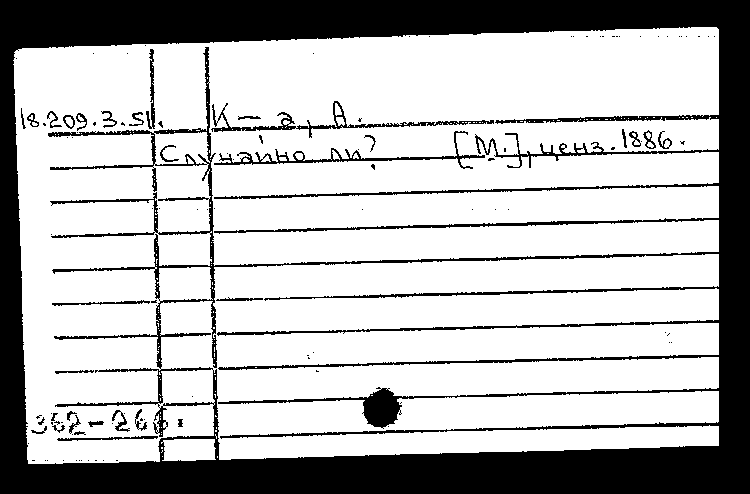 18.209.3.51. К — а, А.
Случайно ли? [М.], ценз. 1886.
362-266.